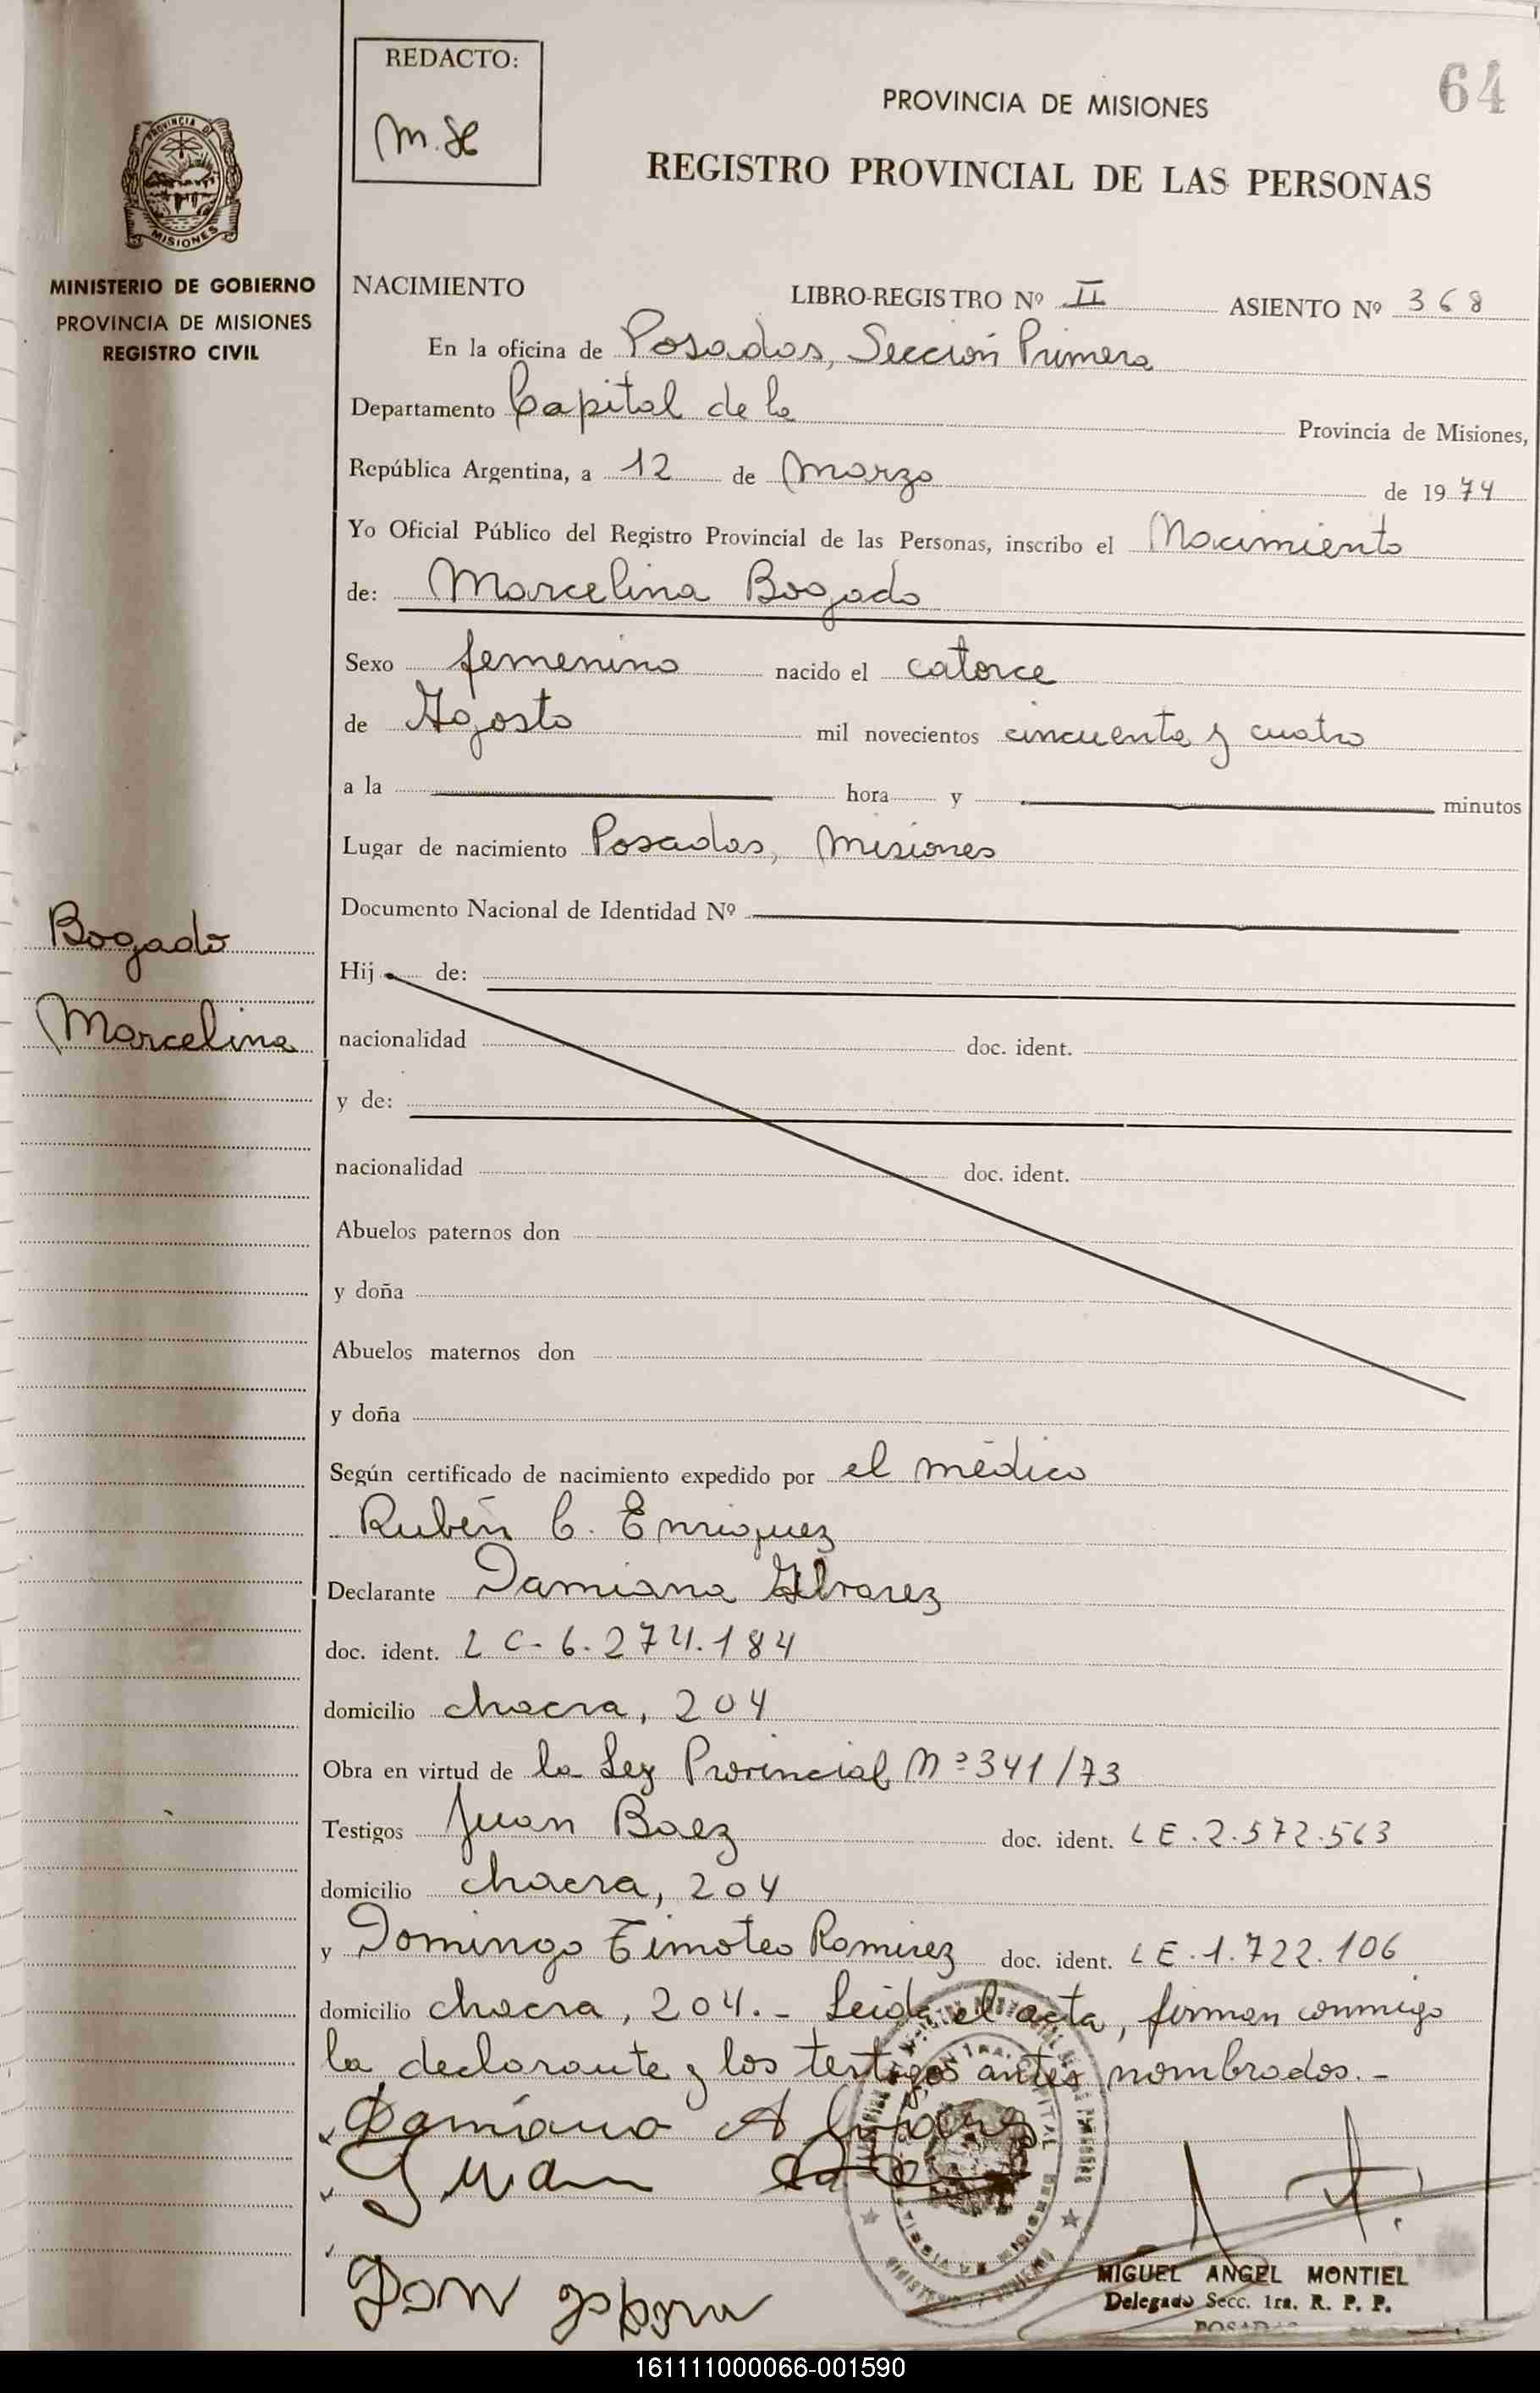 REDACTO:
M. H
64
PROVINCIA DE MISIONES
REGISTRO PROVINCIAL DE LAS PERSONAS
PROVINCIA DE
MISIONES
MINISTERIO DE GOBIERNO
PROVINCIA DE MISIONES
REGISTRO CIVIL
NACIMIENTO LIBRO-REGISTRO Nº II ASIENTO Nº 368
En la oficina de Posadas, Sección Primera
Departamento Capital de la Provincia de Misiones,
República Argentina, a 12 de Marzo de 1974
Yo Oficial Público del Registro Provincial de las Personas, inscribo el Nacimiento
de: Marcelina Bogado
Sexo femenino nacido el catorce
de Agosto mil novecientos cincuenta y cuatro
a la hora y minutos
Lugar de nacimiento Posadas, Misiones
Documento Nacional de Identidad Nº
Bogado
Marcelina
Hij de:
nacionalidad doc. ident.
y de:
nacionalidad doc. ident.
Abuelos paternos don
y doña
Abuelos maternos don
y doña
Según certificado de nacimiento expedido por el médico
Rubén C. Enriquez
Declarante Damiana Alvarez
doc. ident. L C- 6.274.184
domicilio chacra, 204
Obra en virtud de la Ley Provincial Nº 341/73
Testigos Juan Baez doc. ident. L E. 2.572.563
domicilio chacra, 204
y Domingo Timoteo Ramirez doc. ident. L E. 1.722.106
domicilio chacra, 204.- Leida el acta, firman conmigo
la declarante y los testigos antes nombrados.-
Damiana Albares
Juan
MIGUEL ANGEL MONTIEL
Delegado Secc. 1ra. R. P. P.
POSADAS
161111000066-001590